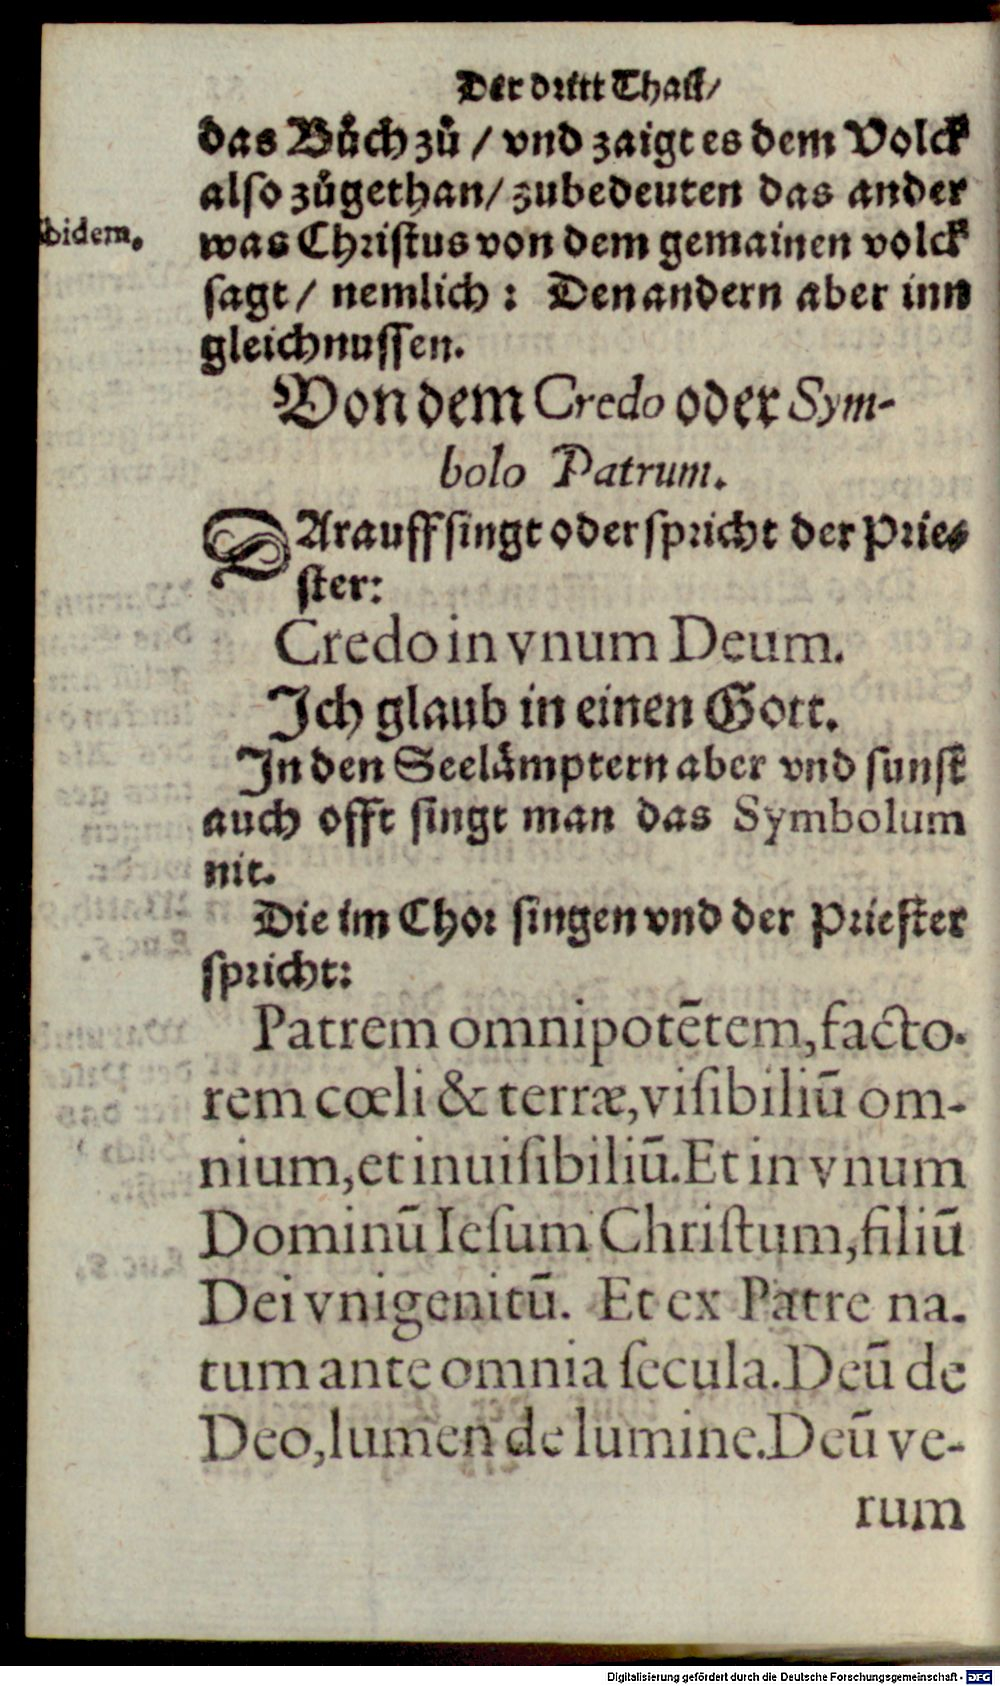 Der dritt Thail/
das Bůch zů / vnd zaigt es dem Volck
also zůgethan/ zubedeuten das ander
ibidem.
was Christus von dem gemainen volck
sagt / nemlich : Den andern aber inn
gleichnussen.
Von dem Credo oder Sym-
bolo Patrum.
DArauff singt oder spricht der Prie-
ster:
Credo in vnum Deum.
Ich glaub in einen Gott.
In den Seelämptern aber vnd sunst
auch offt singt man das Symbolum
nit.
Die im Chor singen vnd der Priester
spricht:
Patrem omnipotētem, facto-
rem cœli & terræ, visibiliū om-
nium, et inuisibiliū. Et in vnum
Dominū Iesum Christum, filiū
Dei vnigenitū. Et ex Patre na-
tum ante omnia secula. Deū de
Deo, lumen de lumine. Deū ve-
rum
Digitalisierung gefördert durch die Deutsche Forschungsgemeinschaft - DFG